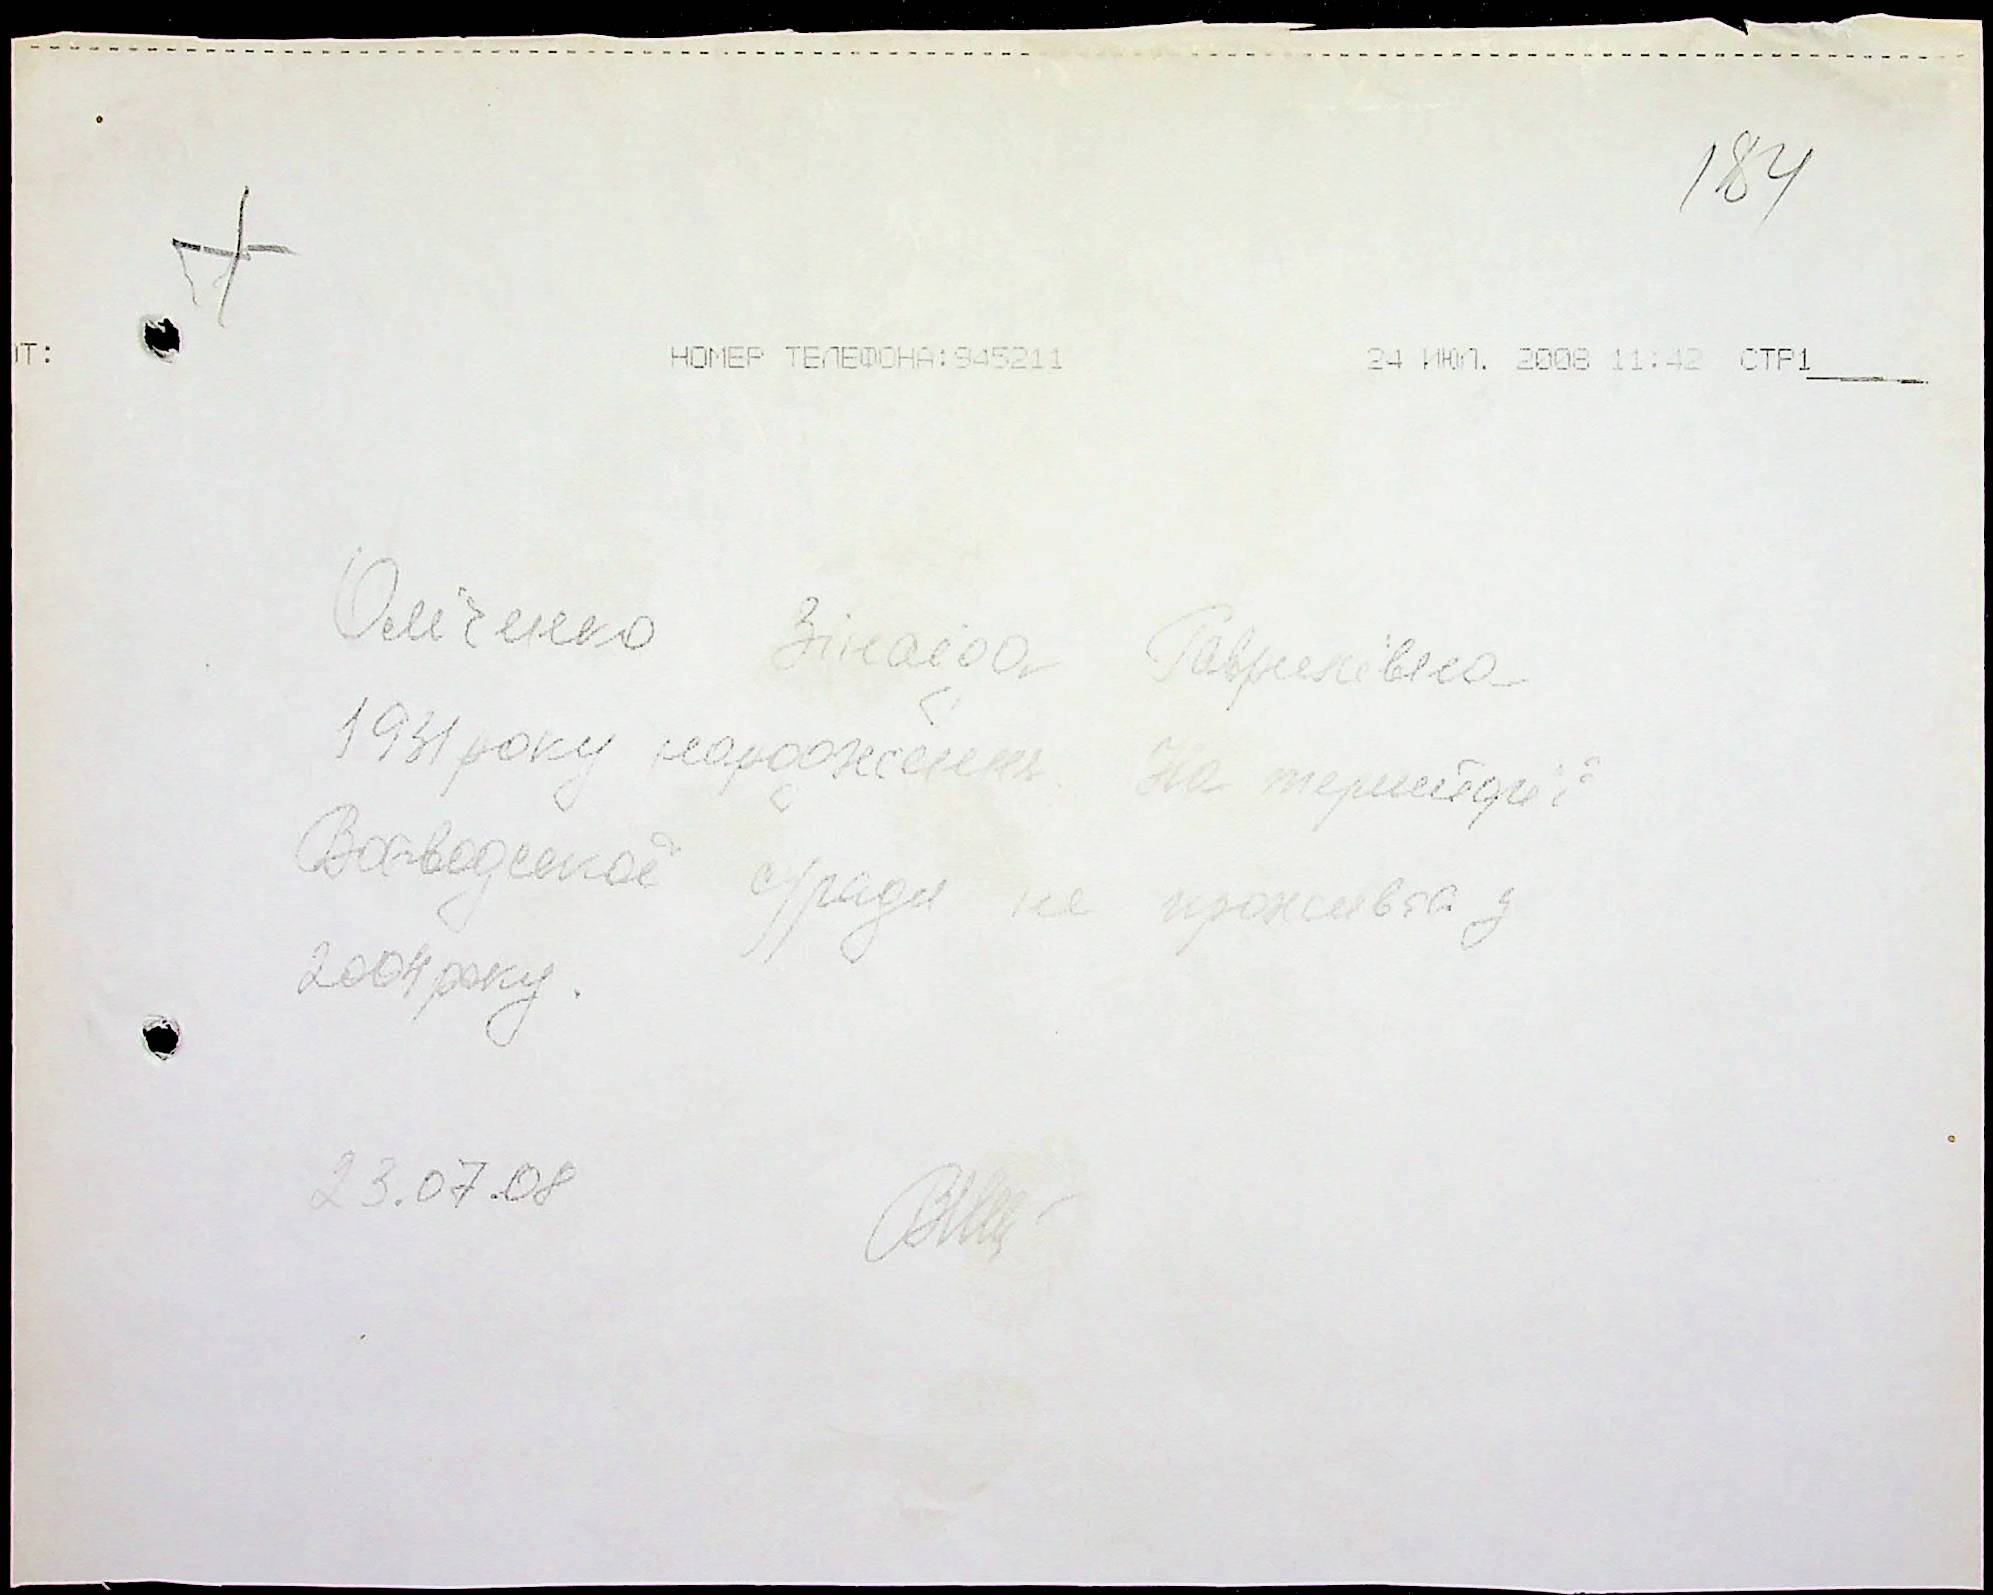 184
ОТ: НОМЕР ТЕЛЕФОНА:945211 24 ИЮЛ. 2008 11:42 СТР1
Оліченко Зінаїда Гаврилівна
1931 року народження. На території
Воєводської с/ради не прожива у
2004 року.
23.07.08